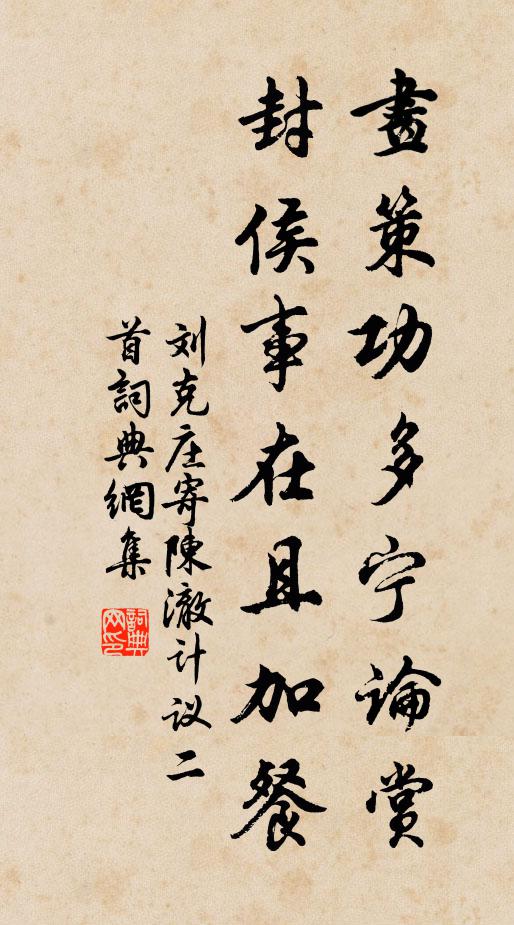 畫策功多宁論賞
封侯事在且加餐
刘克庄寄陳澈计议二
首詞典網集
詞典网印